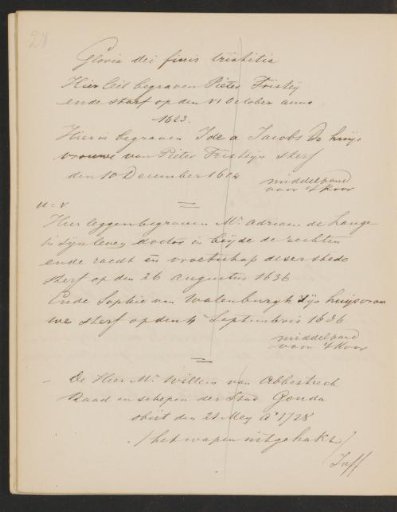 Gloria dei finis tristitia
Hier leit begraven Pieter
ende sterf op den October anno
1623.
Hier is begraven Ida Jacobs De huijs
vrouwe van Pieter sterf
den 10 December 1624
middelpand
voor 't koor
Hier leggen begraven Mr. Adriaen de Lange
in syn leven doctor in beijde de rechten
ende raedt en vroetschap deser stede
sterf op den 26 Augustus 1636
Ende Sophie van Walenburgh syn huijsvrou
we sterf op den 4 Septembris 1636
middelpand
voor 't koor
De Heer Mr. Willem van Abbesteech
Raad en schepen der Stad Gouda
obiit den 21 Mey Ao 1728
/het wapen uitgehakt/